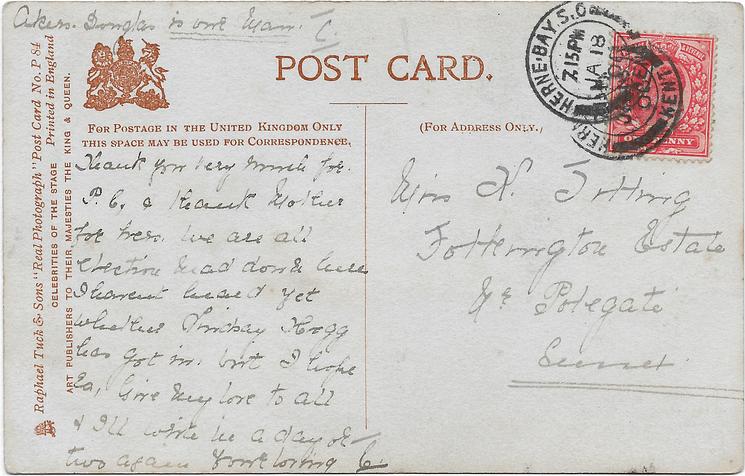 Akers. Douglas is one Man. C.
POST CARD.
FOR POSTAGE IN THE UNITED KINGDOM ONLY
THIS SPACE MAY BE USED FOR CORRESPONDENCE.
(FOR ADDRESS ONLY.)
Raphael Tuck & Sons "Real Photograph" Post Card No. P 84
CELEBRITIES OF THE STAGE Printed in England
ART PUBLISHERS TO THEIR MAJESTIES THE KING & QUEEN.
HERNE-BAY.S.O
7.15PM
JA 18
KENT
Thank you very much for
P.C, & thank Mother
for hers. We are all
election mad down here
I havent heard yet
whether Lindsay Hogg
has got in. but I hope
so, Give my love to all
& I'll write in a day or
two again Your loving C.
Miss K.
Estate
Nr Polegate
Sussex